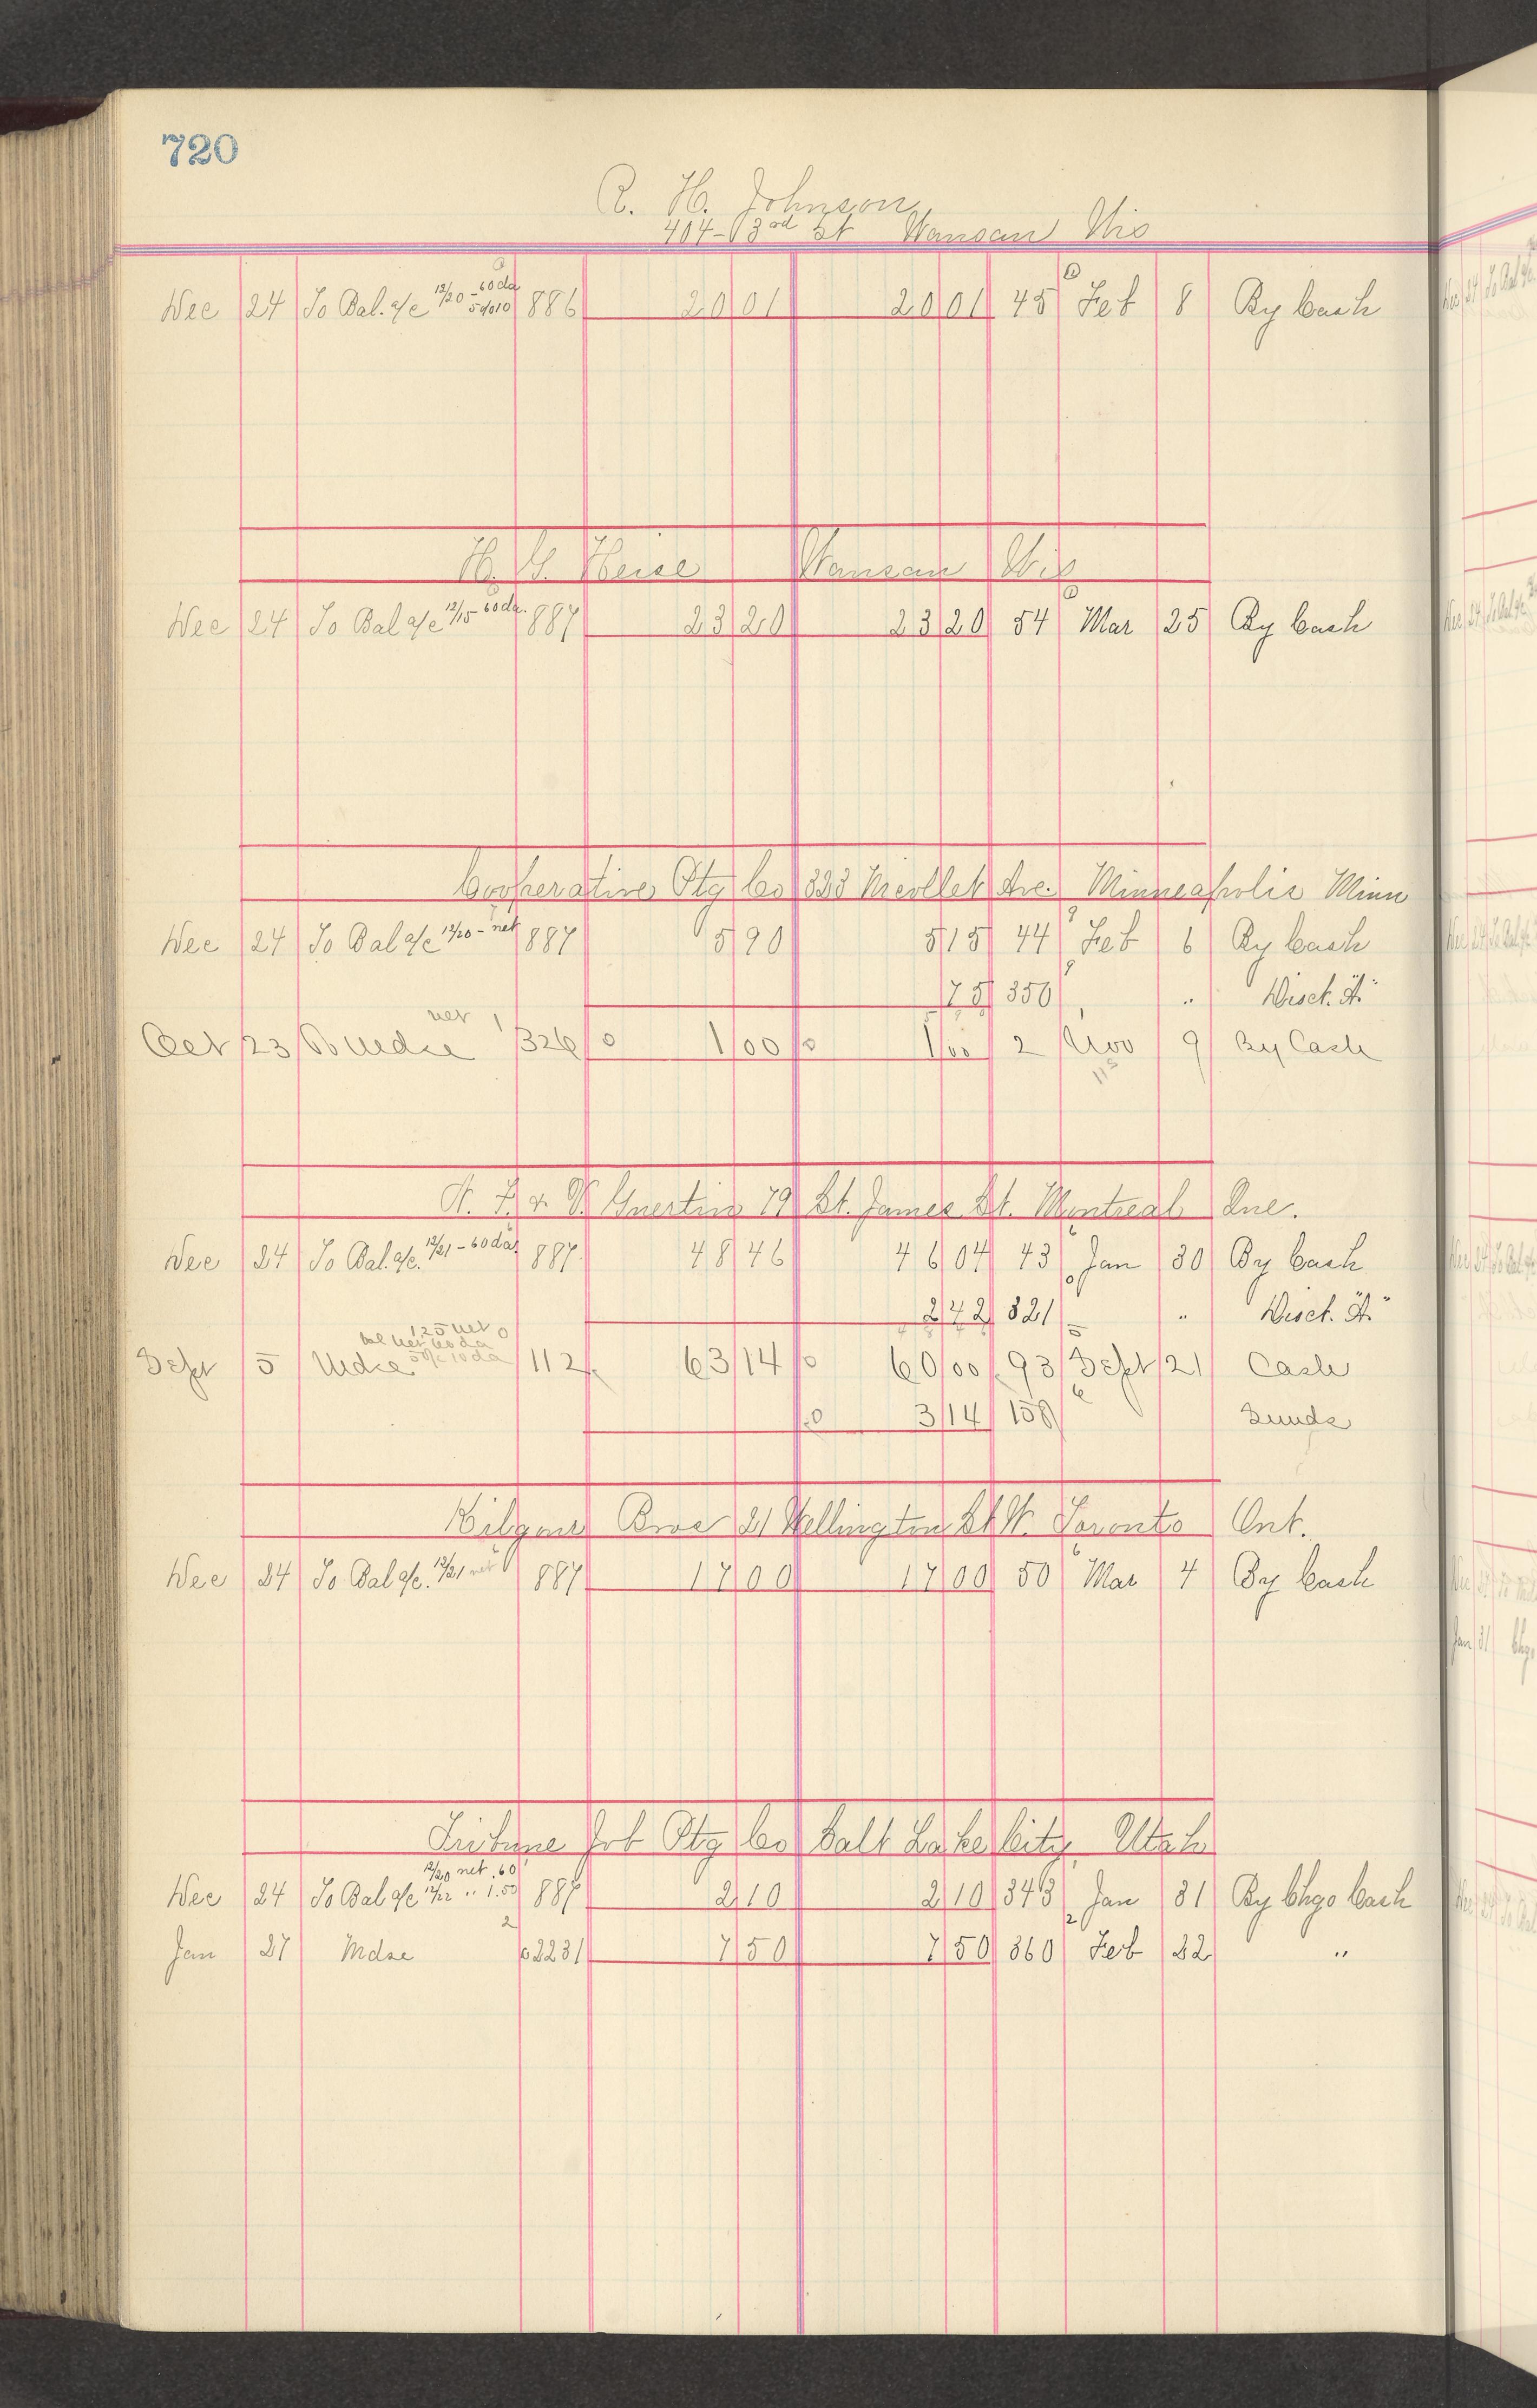 720
R. H. Johnson
404-3rd St Wausau Wis
Dec 24 To Bal. a/c 12/20 - 60 da 5%10 886 20 01 20 01 45 Feb 8 By Cash
H. G. Heise Wausau Wis
Dec 24 To Bal a/c 12/15 60 da. 887 23 20 23 20 54 Mar 25 By Cash
Cooperative Ptg Co 323 Nicollet Ave. Minneapolis Minn
Dec 24 To Bal a/c 12/20 - net 887 5 90 5 15 44 Feb 6 By Cash
75 350 " Disct. "A"
net
Oct 23 To Mdse 326 1 00 1 00 2 Nov 9 By Cash
115
A. F. & V. Guertin 79 St. James St. Montreal Que.
Dec 24 To Bal. a/c. 12/21 - 60 da 887 48 46 46 04 43 Jan 30 By Cash
2 42 321 " Disct. "A"
125 net
bal net 60 da
5% 10 da
Sept 5 Mdse 112 63 14 60 00 93 Sept 21 Cash
3 14 158 Sunds
Kilgour Bros 21 Wellington St W. Toronto Ont.
Dec 24 To Bal a/c. 12/21 net 887 17 00 17 00 50 Mar 4 By Cash
Tribune Job Ptg Co Salt Lake City Utah
12/20 net .60
Dec 24 To Bal a/c 12/22 " 1.50 887 2 10 2 10 343 Jan 31 By Chgo Cash
Jan 27 Mdse 2231 7 50 7 50 360 Feb 22 "